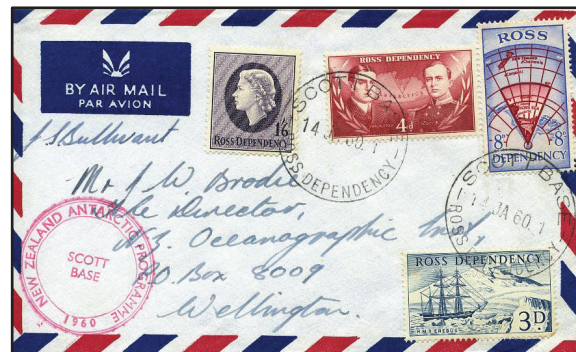 BY AIR MAIL
PAR AVION
1/6
ROSS DEPENDENCY
ROSS DEPENDENCY
4d
ROSS
8d 8d
DEPENDENCY
SCOTT BASE
14 JA 60. 1
ROSS DEPENDENCY
SCOTT BASE
14 JA 60. 1
ROSS
Mr J W. Brodie
The Director,
N.Z. Oceanographic Inst,
P.O. Box 8009
Wellington.
NEW ZEALAND ANTARCTIC PROGRAMME
SCOTT
BASE
1960
ROSS DEPENDENCY
H.M.S. EREBUS
3D.